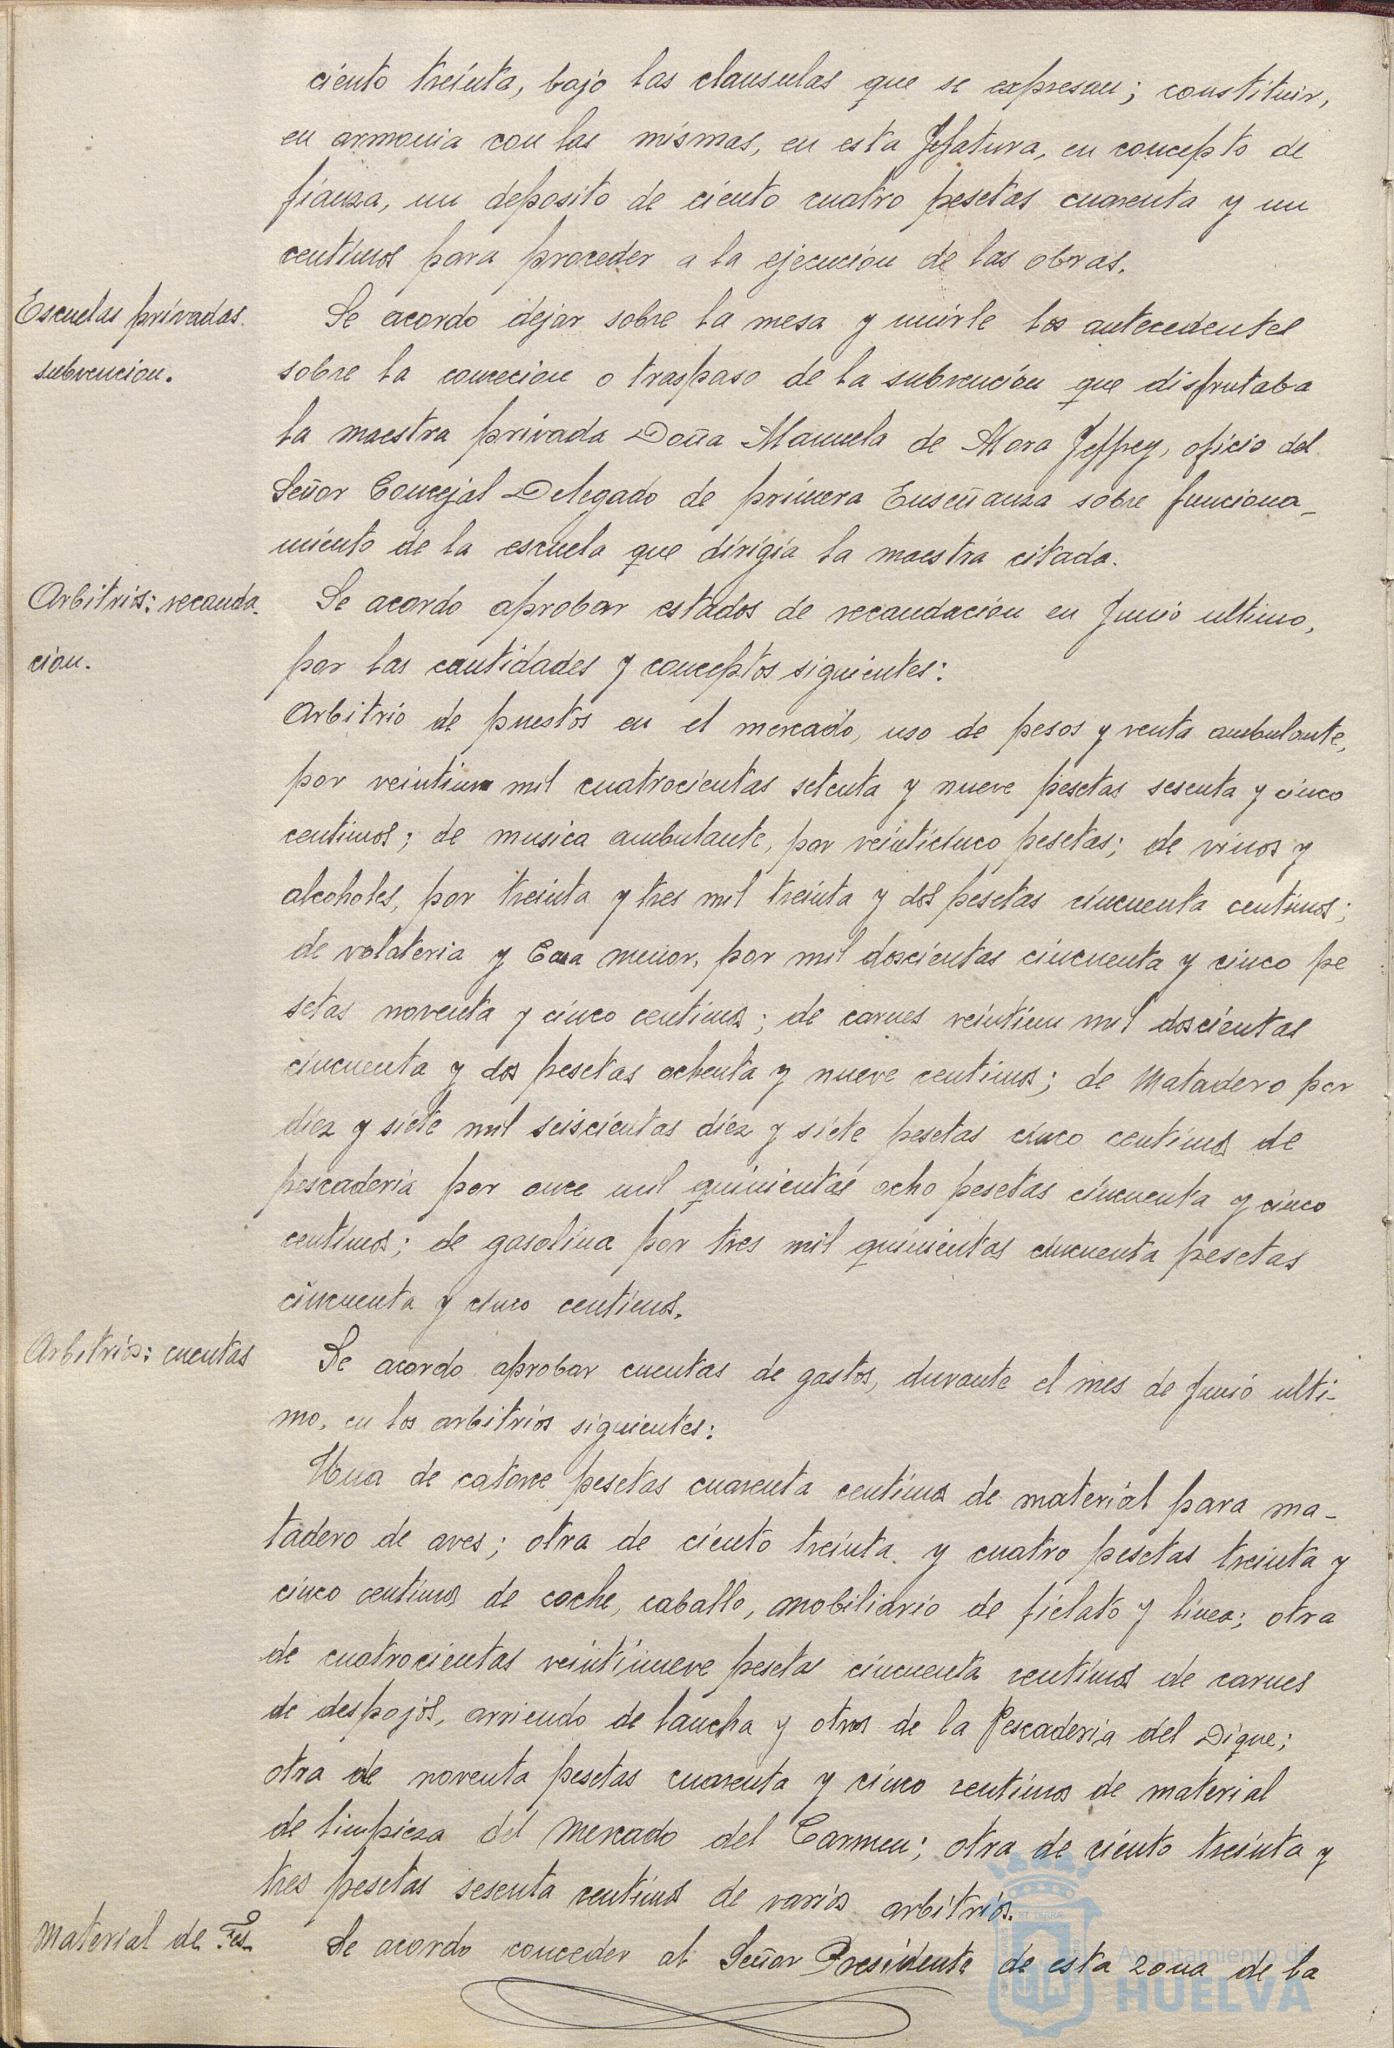 ciento treinta, bajo las clausulas que se expresan; constituir,
en armonia con las mismas, en esta Jefatura, en concepto de
fianza, un deposito de ciento cuatro pesetas cuarenta y un
centimos para proceder a la ejecución de las obras.
Escuelas privadas.
subvencion.
Se acordo dejar sobre la mesa y unirle los antecedentes
sobre la concecion o traspaso de la subvención que disfrutaba
la maestra privada Doña Manuela de Mora Jeffrey, oficio del
Señor Concejal Delegado de primera Enseñanza sobre funciona-
miento de la escuela que dirigía la maestra citada.
Arbitrios: recauda-
cion.
Se acordo aprobar estados de recaudación en Junio ultimo,
por las cantidades y conceptos siguientes:
Arbitrio de puestos en el mercado, uso de pesos y venta ambulante,
por veintiun mil cuatrocientas setenta y nueve pesetas sesenta y cinco
centimos; de musica ambulante, por veinticinco pesetas; de vinos y
alcoholes, por treinta y tres mil treinta y dos pesetas cincuenta centimos;
de volateria y Caza menor, por mil doscientas cincuenta y cinco pe
setas noventa y cinco centimos; de carnes veintiun mil doscientas
cincuenta y dos pesetas ochenta y nueve centimos; de Matadero por
diez y siete mil seiscientas diez y siete pesetas cinco centimos de
pescaderia por once mil quinientas ocho pesetas cincuenta y cinco
centimos; de gasolina por tres mil quinientas cincuenta pesetas
cincuenta y cinco centimos.
Arbitrios: cuentas
Se acordo aprobar cuentas de gastos, durante el mes de Junio ulti-
mo, en los arbitrios siguientes:
Una de catorce pesetas cuarenta centimos de material para ma-
tadero de aves; otra de ciento treinta y cuatro pesetas treinta y
cinco centimos de coche, caballo, mobiliario de fielato y linea; otra
de cuatrocientas veintinueve pesetas cincuenta centimos de carnes
de despojos, arriendo de lancha y otros de la Pescaderia del Dique;
otra de noventa pesetas cuarenta y cinco centimos de material
de limpieza del Mercado del Carmen; otra de ciento treinta y
tres pesetas sesenta centimos de varios arbitrios.
Material de Fes-
Se acordo conceder al Señor Presidente de esta zona de la
Ayuntamiento de
HUELVA